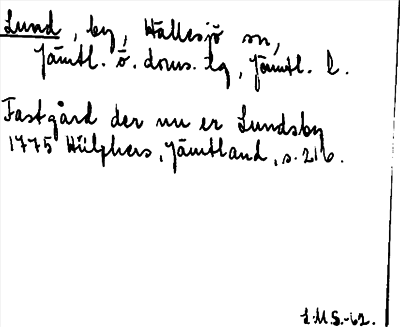 Lund, by, Hällesjö sn,
Jämtl. ö. doms. tg, Jämtl. l.
Fastgård der nu er Lundsby
1775 Hülphers, Jämtland, s. 216.
L.M.S.-62.